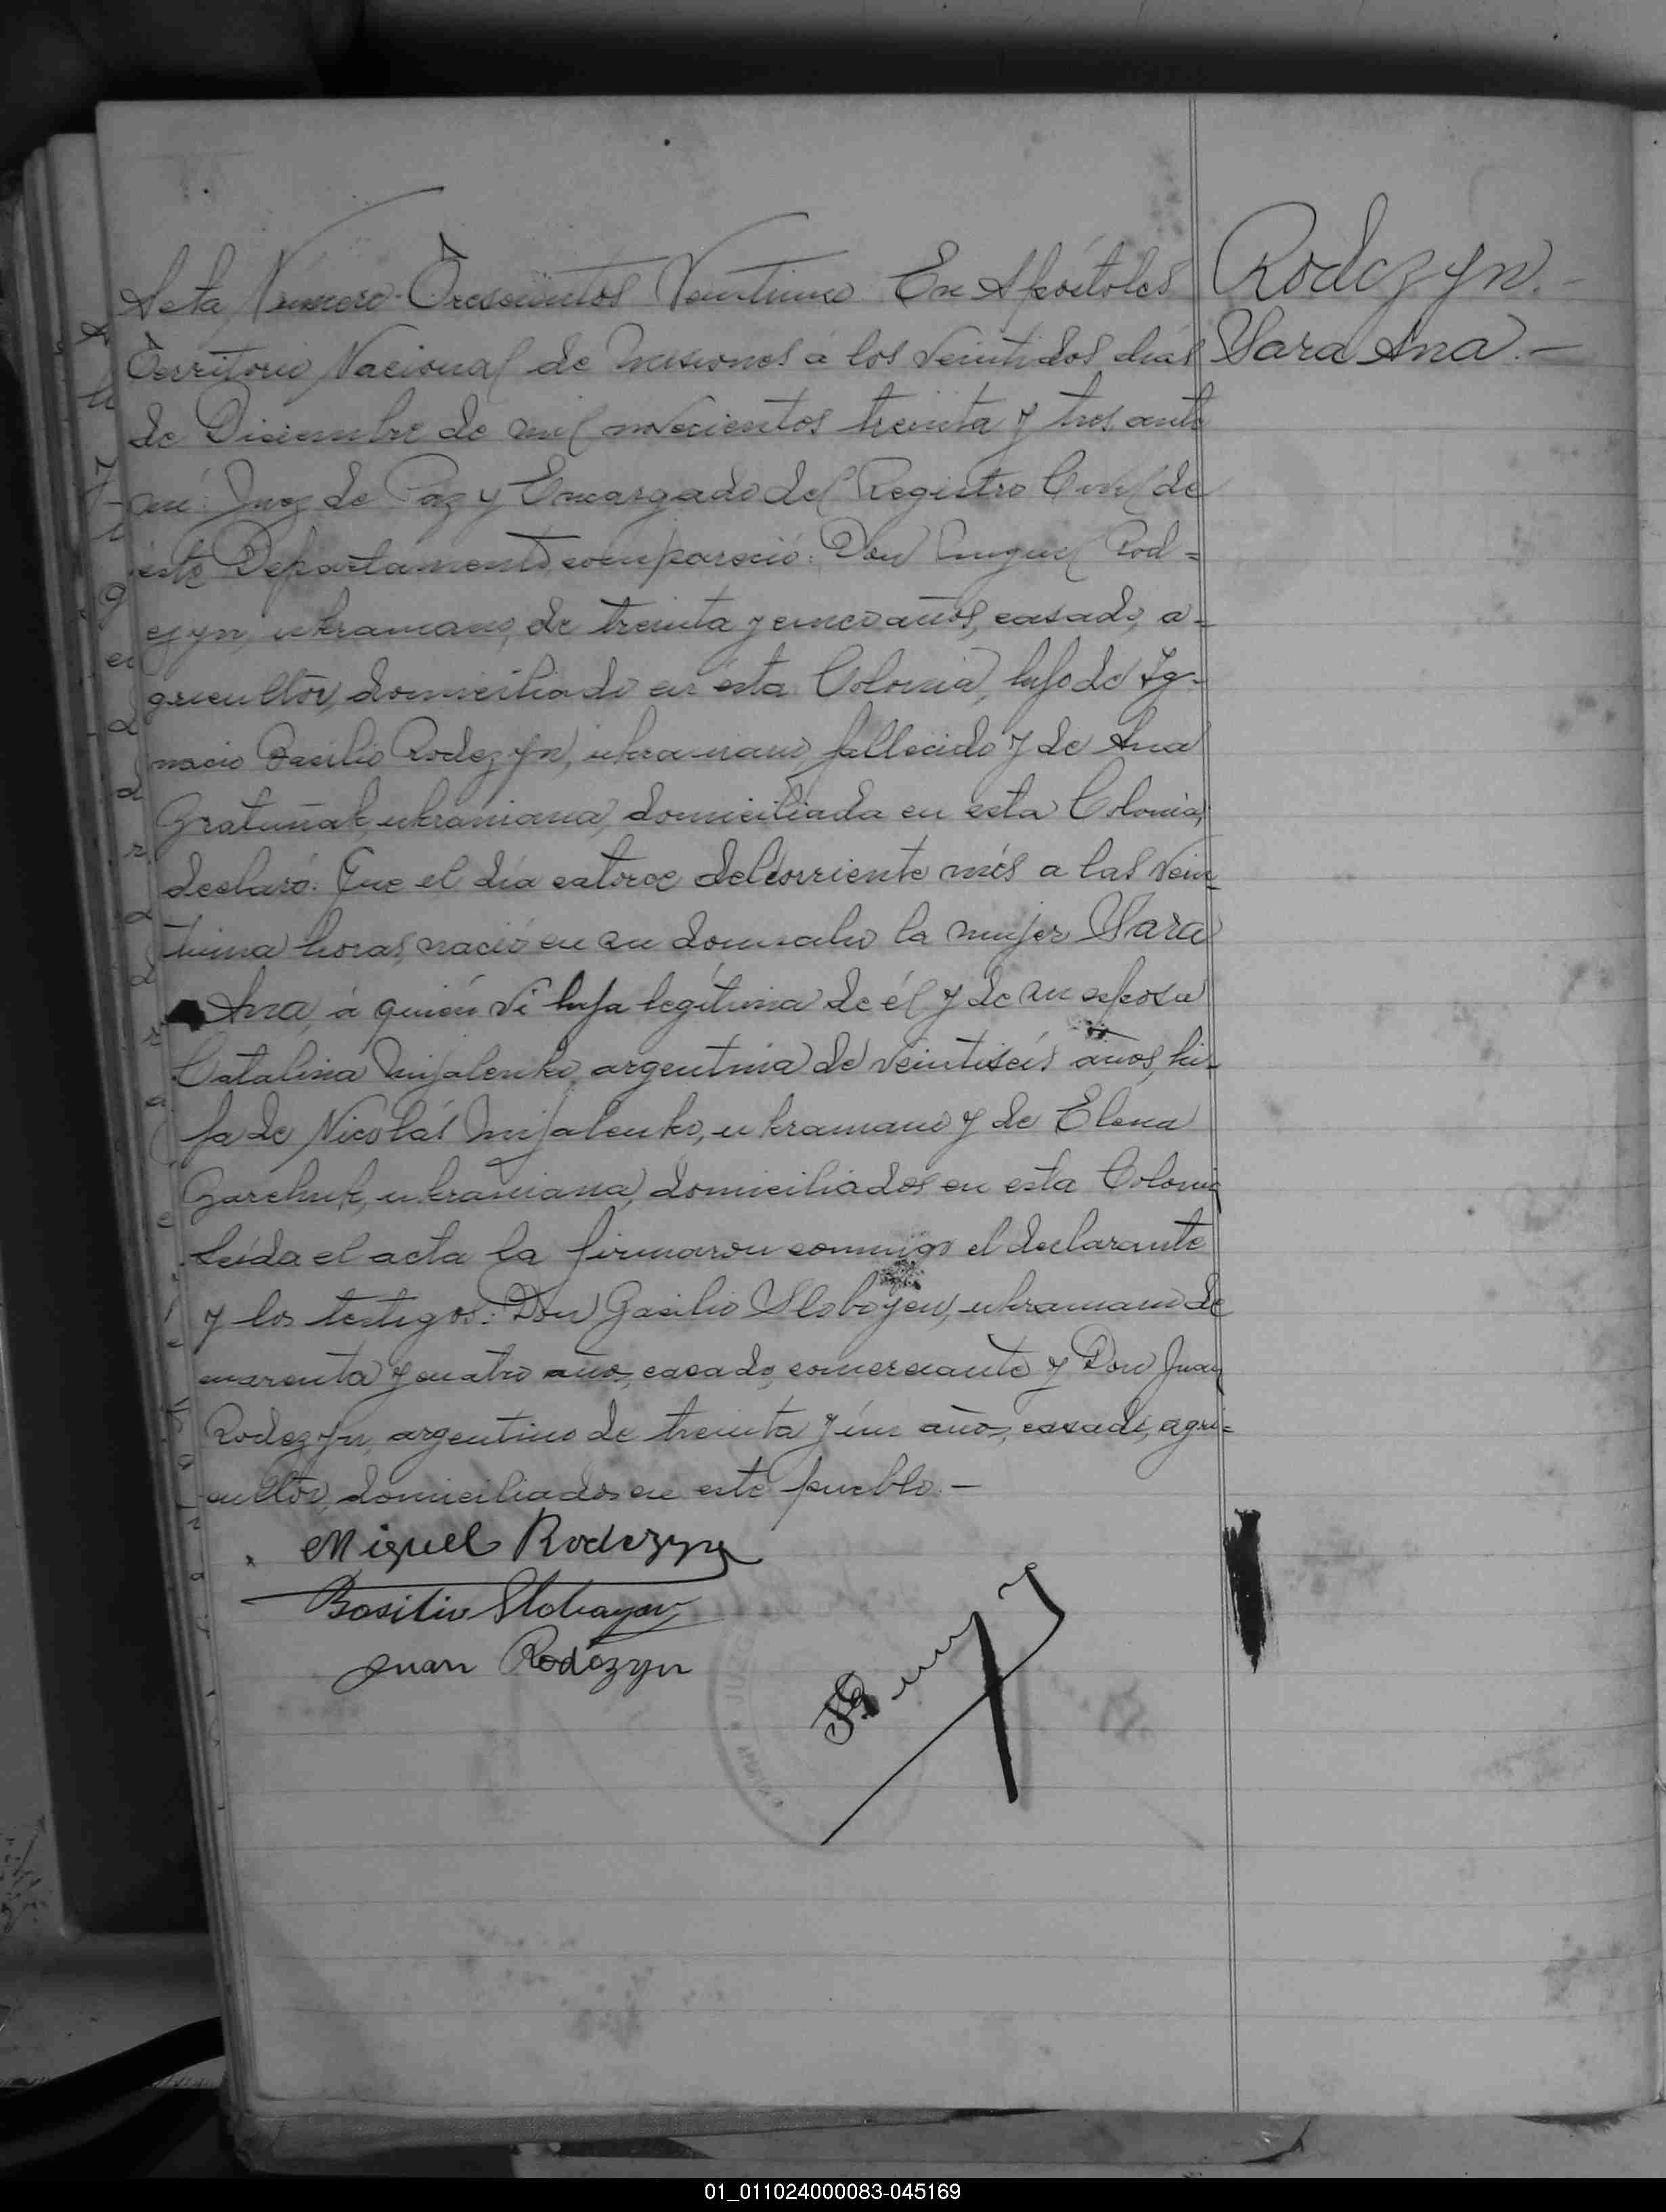 Rodczyn.-
Sara Ana.-
Acta Número Trescientos Veintiuno En Apóstoles
Territorio Nacional de Misiones á los veintidos días
de Diciembre de mil novecientos treinta y tres ante
mí: Juez de Paz y Encargado del Registro Civil de
éste Departamento compareció: Don Miguel Rod=
czyn, ukraniano, de treinta y cinco años, casado, a-
gricultor, domiciliado en ésta Colonia, hijo de Ig-
nacio Basilio Rodczyn, ukraniano, fallecido y de Ana
Gratuñak, ukraniana, domiciliada en esta Colonia;
declaró: Que el día catorce del corriente més a las vein-
tiuna horas, nació en su domicilio la mujer Sara
Ana, á quién ví hija legítima de él y de su esposa
Catalina Mijalenko, argentina de veintiséis años, hi-
ja de Nicolás Mijalenko, ukraniano y de Elena
Garchuk, ukraniana, domiciliados en esta Colonia
Leída el acta la firmaron conmigo el declarante
y los testigos: Don Basilio Slobayen, ukraniano de
cuarenta y cuatro años, casado, comerciante y Don Juan
Rodczyn, argentino de treinta y ún años, casado, agri=
cultor, domiciliados en este pueblo.-
Miguel Rodczyn
Basilio Slobayen
Juan Rodczyn
JUZG
01_011024000083-045169